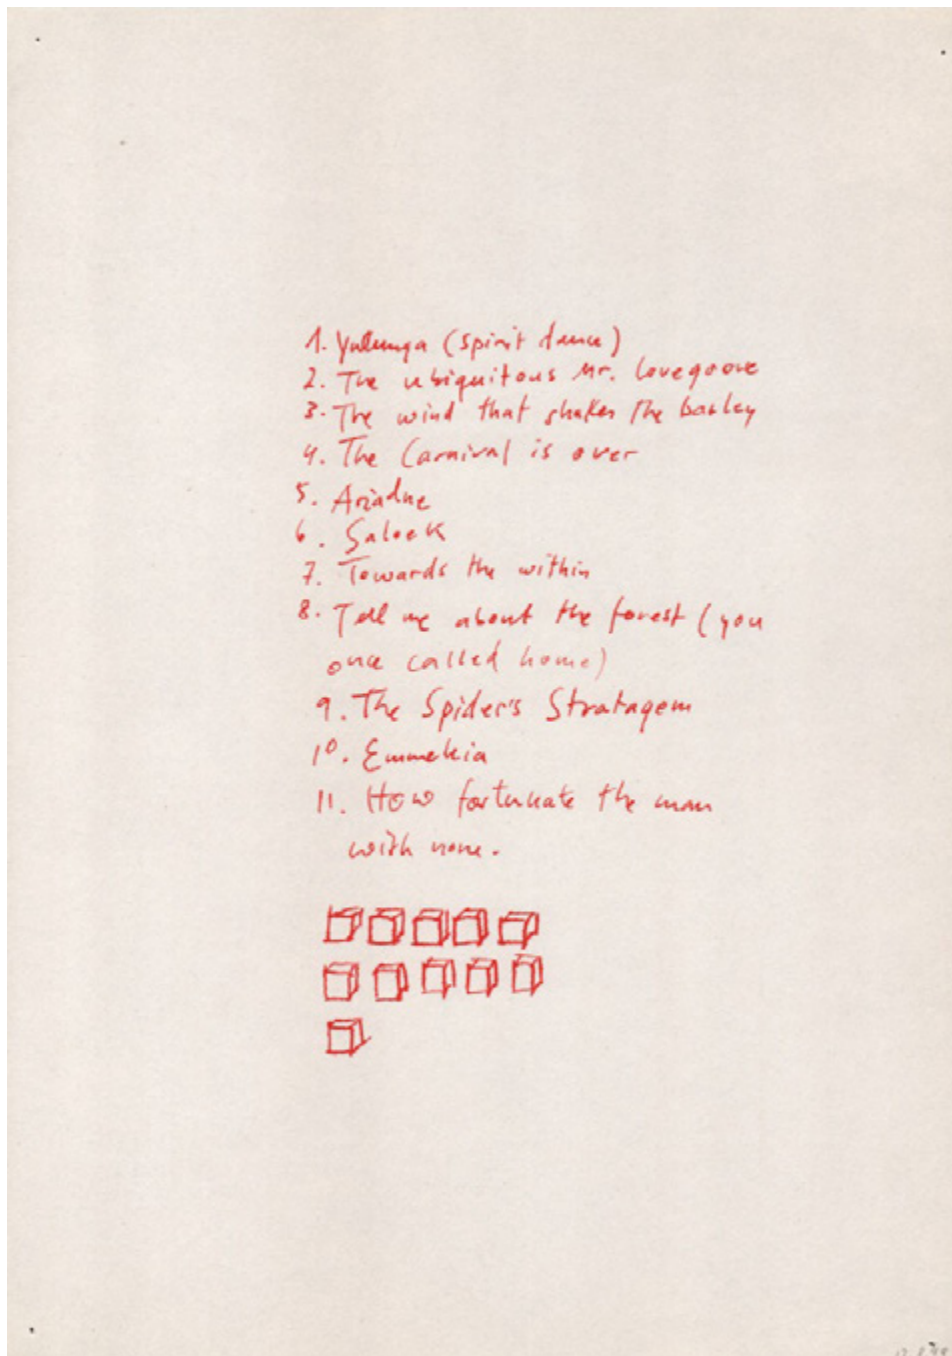 1. Yulunga (spirit dance)
2. The ubiquitous Mr. Lovegoove
3. The wind that shakes the barley
4. The Carnival is over
5. Ariadne
6. Saleek
7. Towards the within
8. Tell me about the forest (you
once called home)
9. The Spider's Stratagem
10. Emmeleia
11. How fortunate the man
with none.